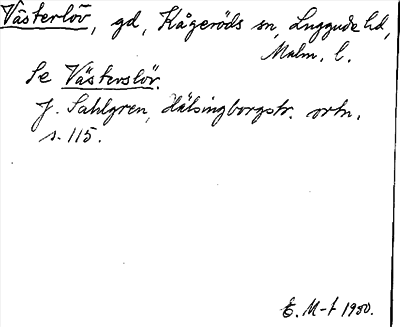 Västerlöv, gd, Kågeröds sn, Luggude hd,
Malm. l.
Se Västerslöv.
J. Sahlgren, Hälsingborgstr. ortn.
s. 115.
E. M-t 1950.